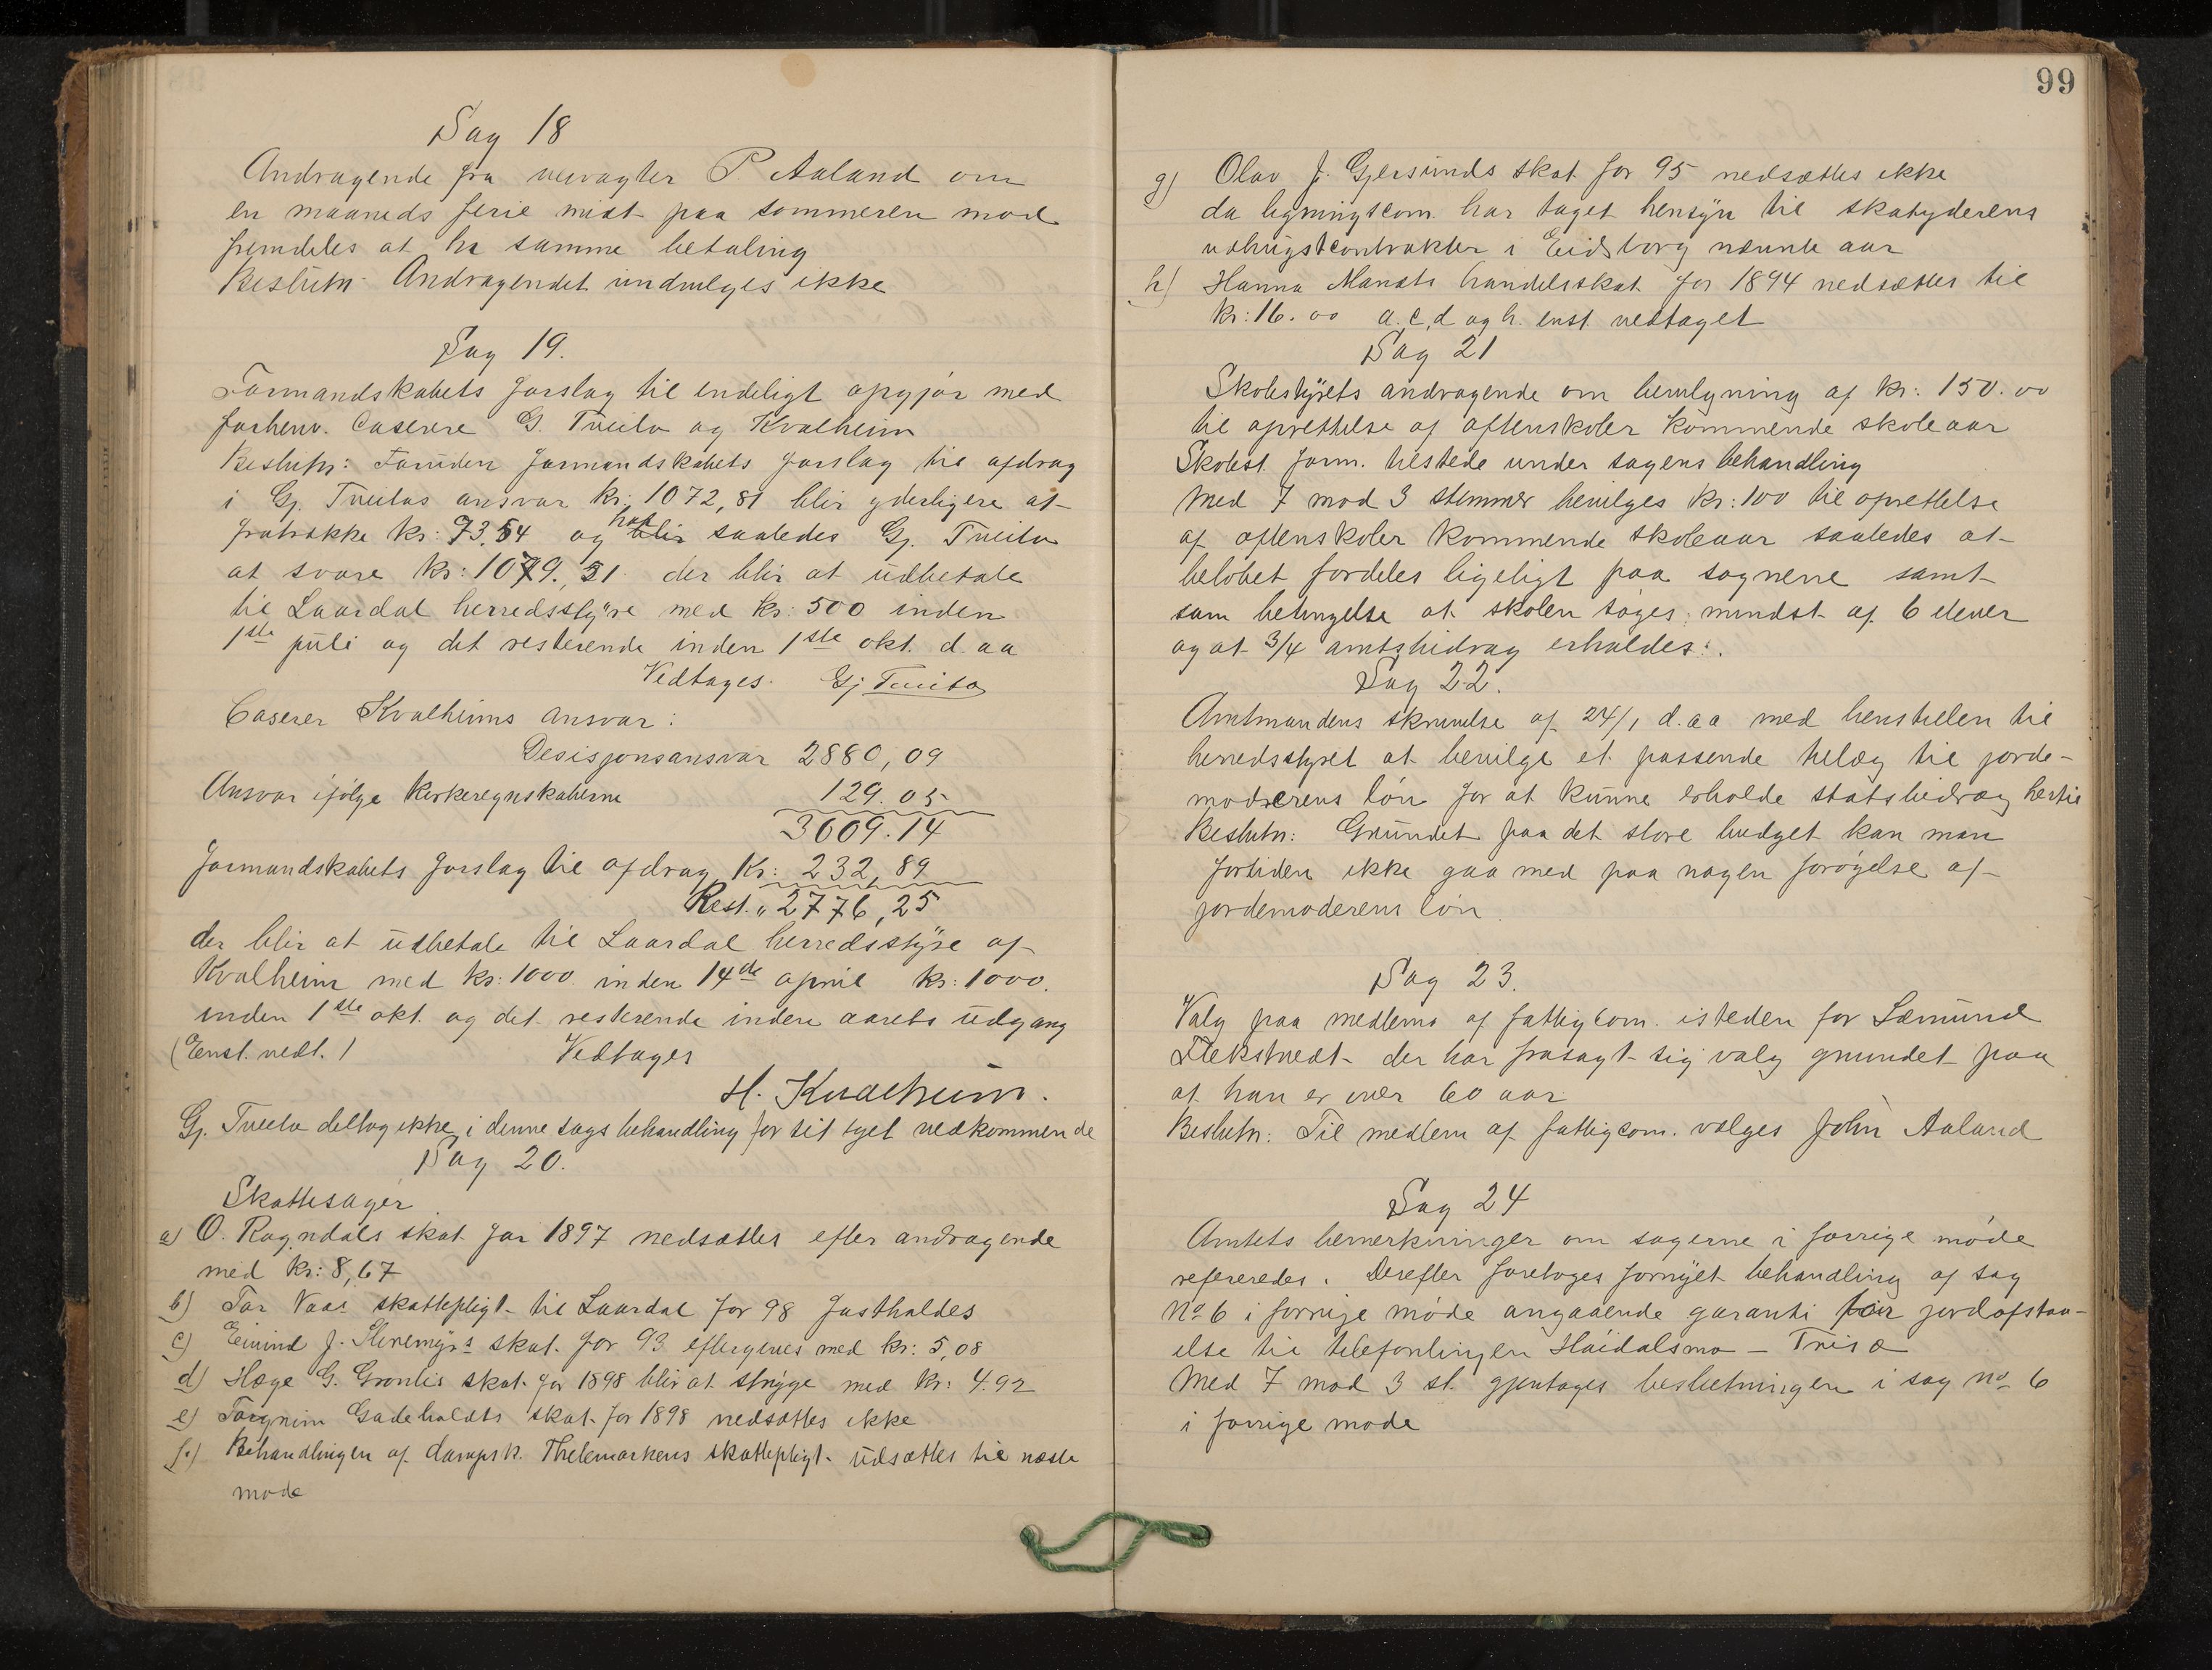 Sag 18
Andragende fra veivogter P Aaland om
en maaneds ferie midt paa sommeren mod
fremdeles at ha samme betaling
Beslutn Andragendet indvilges ikke
Sag 19.
Formandskabets forslag til endeligt opgjör med
forhenv. Caserere G. Tveito og Kvalheim
Beslutn: Foruden formandskabets forslag til afdrag
i Gj. Tveitos ansvar kr; 1072,81 blir yderligere at
fratrække kr: 73,54 og har saaledes Gj. Tveito
at svare kr: 1079, 31 der blir at udbetale
til Laardal herredsstyre med kr: 500 inden
1ste juli og det resterende inden 1ste okt. d. aa
Vedtages. Gj Tveito
Caserer Kvalheims ansvar:
Desisjonsansvar 2880,09
Ansvar ifölge kirkeregnskaberne 129.05
3009.14
Formandskabets forslag til afdrag Kr: 232,89
Rest. " 2776,25
der blir at udbetale til Laardal herredsstyre af
Kvalheim med kr: 1000 inden 14de april kr: 1000.
inden 1ste okt. og det resterende inden aarets udgang
(Enst. vedt.) Vedtages
H. Kvalheim.
Gj. Tveito deltog ikke i denne sags behandling for sit eget vedkommende
Sag 20.
Skattesager
a) O. Ragndals skat for 1897 nedsættes efter andragende
med kr: 8,67
b) Tor Vaas skattepligt til Laardal for 98 fastholdes
c) Eivind J. skat for 93 eftergives med kr: 5,08
d) Hæge G. Gronlis skat for 1898 blir at stryge med kr: 4.92
e) Torgrim skat for 1898 nedsættes ikke
f.) Behandlingen af dampsk. Thelemarkens skattepligt udsættes til næste
møde
99
g) Olav J. Gjersunds skat for 95 nedsættes ikke
da ligningscom. har taget hensyn til skatyderens
udhugstcontrakter i Eidsborg nævnte aar
h) Hanna handelsskat for 1894 nedsættes til
kr: 16.00 a. c, d og h. enst. vedtaget
Sag 21
Skolestyrets andragende om bevilgning af kr: 150.00
til oprettelse af aftenskoler kommende skoleaar
Skolest. form. tilstede under sagens behandling
Med 7 mod 3 stemmer bevilges kr: 100 til oprettelse
af aftenskoler kommende skoleaar saaledes at
belöbet fordeles ligeligt paa sognene samt
som betingelse at skolen söges mindst af 6 elever
og at 3/4 amtsbidrag erholdes.
Sag 22.
Amtmandens skrivelse af 24/1 d. aa med henstillen til
herredsstyret at bevilge et passende tillæg til jorde-
moderens lön for at kunne erholde statsbidrag hertil
Beslutn: Grundet paa det store budget kan man
fortiden ikke gaa med paa nogen forögelse af
jordemoderens lön
Sag 23.
Valg paa medlem af fattigcom. isteden for Sæmund
Flekstvedt der har frasagt sig valg grundet paa
at han er over 60 aar
Beslutn: Til medlem af fattigcom. vælges John Aaland
Sag 24
Amtets bemerkninger om sagerne i forrige möde
refereredes. Derefter foretoges fornyet behandling af sag
No 6 i forrige möde angaaende garanti for jordafstaa-
else til telefonlinjen Höidalsmo - Trisæ
Med 7 mod 3 st. gjentages beslutningen i sag no 6
i forrige möde